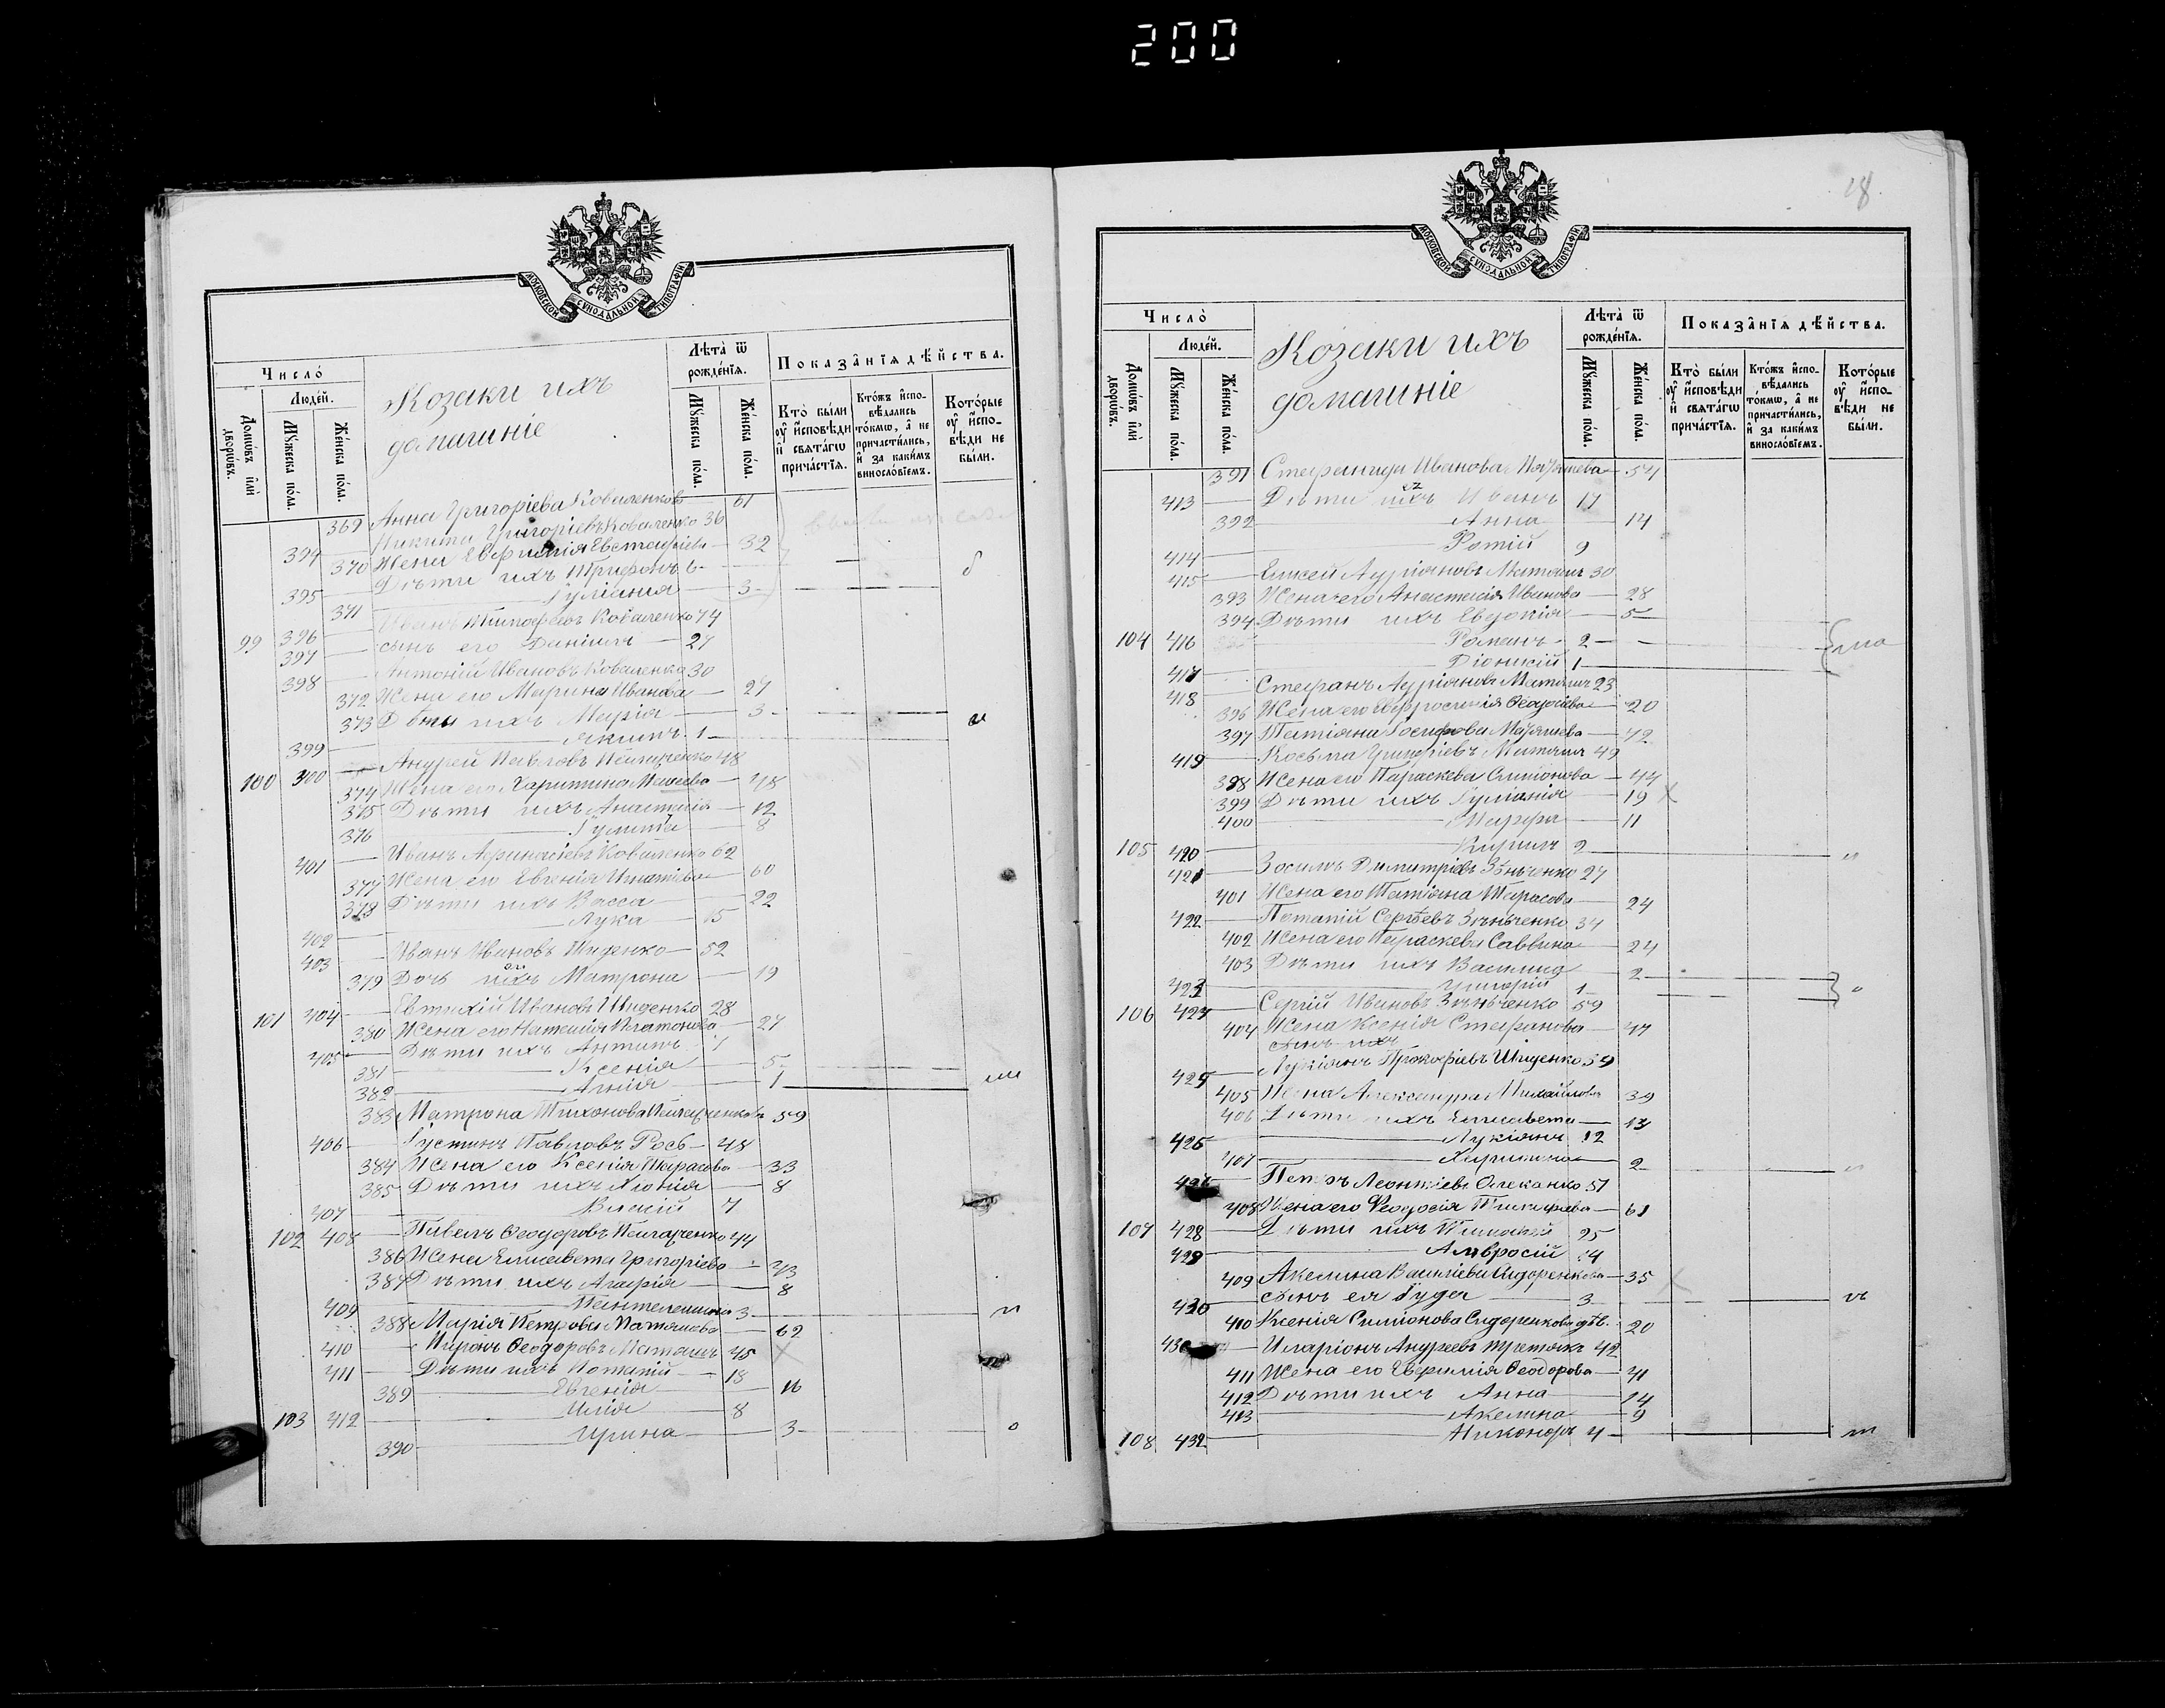 200
МОСКОВСКОЙ СѴНОДАЛЬНОЙ ТИПОГРАФІИ
Число̀
Людéй.
Домѡ́въ и҆лѝ дворѡ́въ.
Мꙋ́жеска по́ла.
Же́нска по́ла.
Козаки ихъ
домашніе
Лѣта̀ ѿ рожде́нїѧ.
Мꙋ́жеска по́ла.
Же́нска по́ла.
Показа̂нїѧ дѣ́йства.
Кто̀ бы́ли ᲂу҆ и҆сповѣди и҆ свѧта́гѡ прича́стїѧ.
Кто́жъ и҆спо-вѣдались то́кмѡ, а҆ не причасти́лись, и҆ за каки́мъ винословїемъ.
Кото́рые ᲂу҆ и҆спо-вѣди не бы́ли.
369 Анна Григоріева Коваленкова 61
394 Никита Григоріевъ Коваленко 36
370 Жена Евфимія Евстафіева 32
395 Дѣти ихъ Трифонъ 6
371 Іуліанія 3
99 396 Иванъ Тимофеевъ Коваленко 74
397 сынъ его Даніилъ 27
398 Антоній Ивановъ Коваленко 30
372 Жена его Марина Иванова 27
373 Дѣти ихъ Марія 3
399 Якимъ 1
100 400 Андрей Павловъ 48
374 Жена его Харитина 48
375 Дѣти ихъ Анастасія 12
376 Іулитта 8
401 Иванъ Афанасіевъ Коваленко 62
377 Жена его Евгенія Игнатіева 60
378 Дѣти ихъ Васса 22
402 Лука 15
403 Иванъ Ивановъ Шиденко 52
379 Дочь ихъ его Матрона 19
101 404 Евтихій Ивановъ Шиденко 28
380 Жена его Наталія Платонова 27
405 Дѣти ихъ Антипъ 7
381 Ксенія 5
382 Агнія 1
383 Матрона Тихонова 59
406 Іустинъ Павловъ Рось 48
384 Жена его Ксенія Тарасова 33
385 Дѣти ихъ Хіонія 8
407 7
102 408 Павелъ Ѳеодоровъ 44
386 Жена Елисавета Григоріева 43
387 Дѣти ихъ Агафія 8
409 Пантелеимонъ 3
388 Марія Петрова Матяшева 62
410 Миронъ Ѳеодоровъ Матяшъ 45
411 Дѣти ихъ Потапій 18
389 Евгенія 16
103 412 Илія 8
390 Ирина 3
18.
МОСКОВСКОЙ СѴНОДАЛЬНОЙ ТИПОГРАФІИ
Число̀
Людéй.
Домѡ́въ и҆лѝ дворѡ́въ.
Мꙋ́жеска по́ла.
Же́нска по́ла.
Козаки ихъ
домашніе
Лѣта̀ ѿ рожде́нїѧ.
Мꙋ́жеска по́ла.
Же́нска по́ла.
Показа̂нїѧ дѣ́йства.
Кто̀ бы́ли ᲂу҆ и҆сповѣди и҆ свѧта́гѡ прича́стїѧ.
Кто́жъ и҆спо-вѣдались то́кмѡ, а҆ не причасти́лись, и҆ за каки́мъ винословїемъ.
Кото́рые ᲂу҆ и҆спо-вѣди не бы́ли.
391 Стефанида Иванова Матяшева 54
413 Дѣти ихъ ея Иванъ 17
392 Анна 14
414 Фотій 9
415 Елисей Адріановъ Матяшъ 30
393 Жена его Анастасія Иванова 28
394 Дѣти ихъ Евдокія 5
104 416 Романъ 2
417 Діонисій 1
418 Стефанъ Адріановъ Матяшъ 23
396 Жена его Евфросинія Ѳеодосіева 20
397 Татіана Іосифова Матяшева 72
419 Косьма Григоріевъ Матяшъ 49
398 Жена его Параскева Симіонова 44
399 Дѣти ихъ Іуліанія 19
400 Марфа 11
105 420 Кирилъ 2
421 Зосимъ Димитріевъ Зѣньченко 27
401 Жена его Татіана Тарасова 24
422 Потапій Сергѣевъ Зѣньченко 34
402 Жена его Параскева Саввина 24
403 Дѣти ихъ Василиса 2
423 Григорій 1
106 424 Сергій Ивановъ Зѣньченко 59
404 Жена Ксенія Стефанова 47
сынъ ихъ
425 Лукіанъ Прокофіевъ Шиденко 59
405 Жена Александра Михайлова 39
406 Дѣти ихъ Елисавета 13
426 Лукіанъ 12
407 Харитина 2
Петръ Леонтіевъ 57
408 Жена его Феодосія 61
107 428 Дѣти ихъ 25
429 Амвросій 14
409 Акелина Василіева Сидоренкова 35
430 сынъ ея Іуда 3
410 Ксенія Симіонова Сидоренкова дѣв. 20
Иларіонъ Андреевъ Третякъ 42
411 Жена его Евфимія Ѳеодорова 41
412 Дѣти ихъ Анна 14
413 Акелина 9
108 432 Никоноръ 4